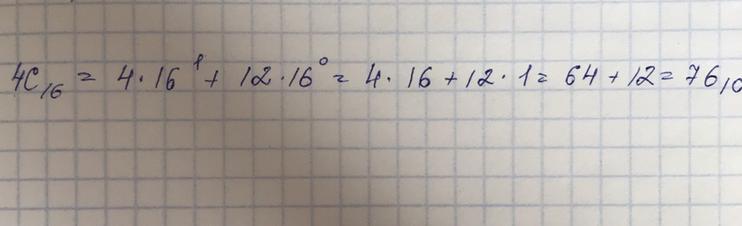 4C₁₆ = 4·16¹ + 12·16⁰ = 4·16 + 12·1 = 64 + 12 = 76₁₀